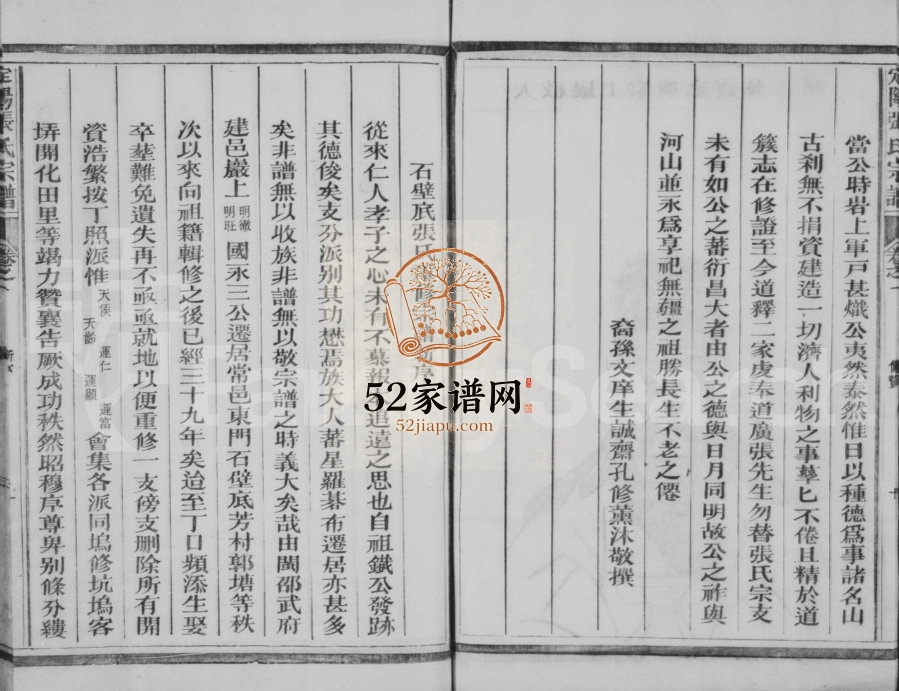 當公時岩上軍戸甚熾公夷然泰然惟日以種德爲事諸名山
古刹無不捐資建造一切濟人利物之事孳匕不倦且精於道
籙志在修證至今道釋二家虔奉道廣張先生勿替張氏宗支
未有如公之蕃衍昌大者由公之德與日月同明故公之祚與
河山並永爲享祀無疆之祖勝長生不老之僊
裔孫文庠生誠齋孔修薰沐敬撰
定陽張氏宗譜
卷之一
石壁底張氏修序
從來仁人孝子之心未有不慕報追遠之思也自祖鐵公發跡
其德俊矣支分派別其功懋焉族大人蕃星羅碁布遷居亦甚多
矣非譜無以收族非譜無以敬宗譜之時義大矣哉由閩邵武府
建邑巖上明徹明旺國永三公遷居常邑東門石壁底芳村郭塘等秩
次以來向祖籍輯修之後已經三十九年矣迨至丁口頻添生娶
卒塟難免遺失再不亟亟就地以便重修一支傍支删除所有開
資浩繁按丁照派惟天俟天齡運仁運顯運富會集各派同塢修坑塢客
塀開化田里等竭力贊襄告厥成功秩然昭穆序尊卑别條分縷
定陽張氏宗譜
卷之一
52家谱网
52jiapu.com